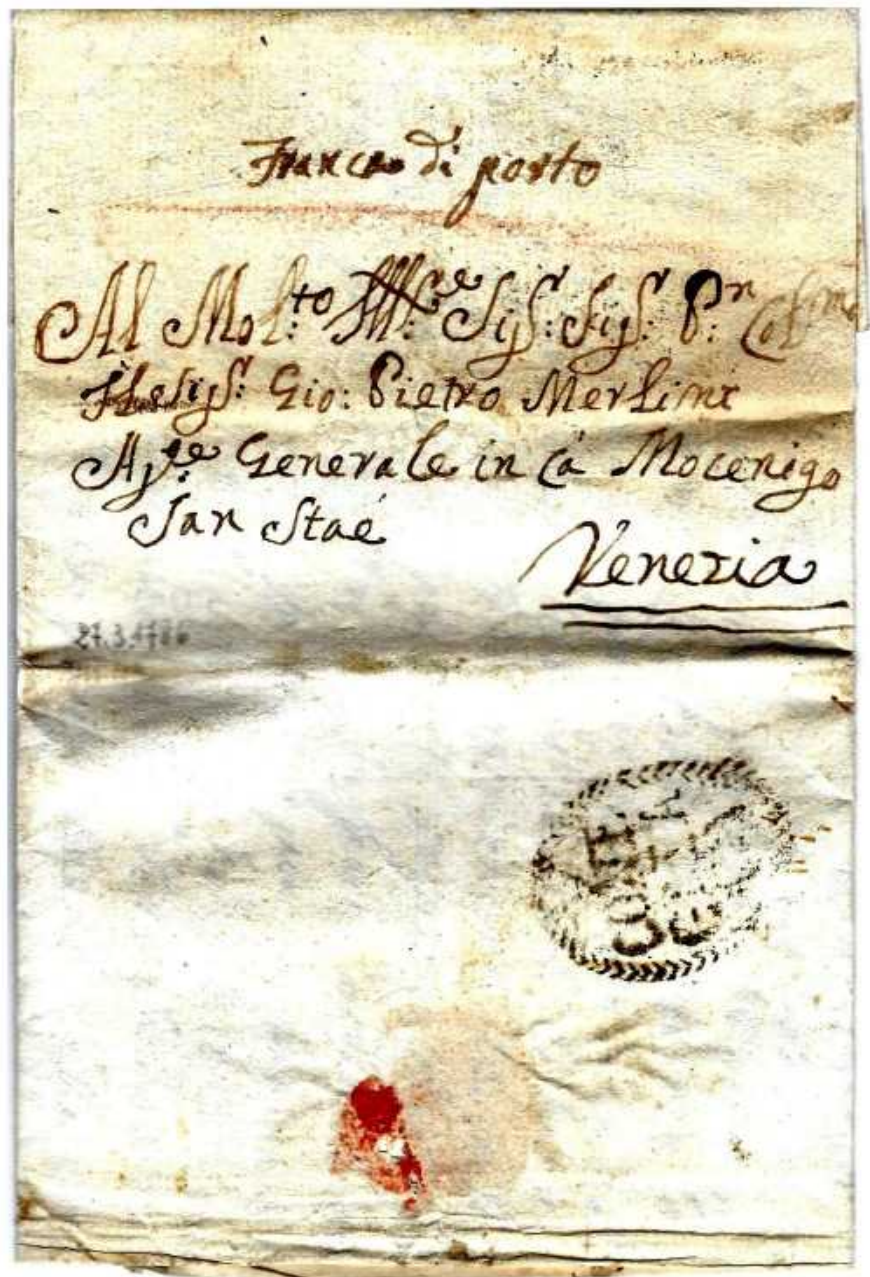 Franca di porto
Al Mol:to Ill:re Sig: Sig: P:n Col:mo
Il Sig: Gio: Pietro Merlini
Ag:te Generale in Cà Mocenigo
San Staè
Venezia
27.3.1786